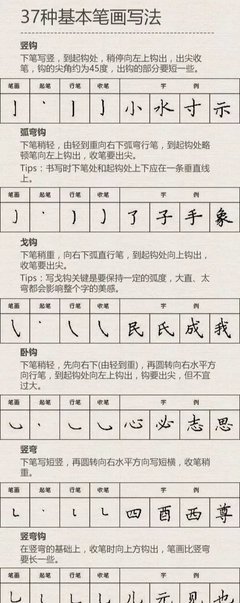 37种基本笔画写法
竖钩
下笔写竖，到起钩处，稍停向左上钩出，出尖收
笔，钩的尖角约为45度，出钩的部分要短一些。
笔画 起笔 行笔 收笔 字 例
亅 丶 丨 亅 小 水 寸 示
弧弯钩
下笔稍轻，由轻到重向右下弧弯行笔，到起钩处略
顿笔向左上钩出，收笔要出尖。
Tips：书写时下笔处和起钩处上下应在一条垂直线
上。
笔画 起笔 行笔 收笔 字 例
了 子 手 象
戈钩
下笔稍重，向右下弧直行笔，到起钩处向上钩出，
收笔要出尖。
Tips：写戈钩关键是要保持一定的弧度，太直、太
弯都会影响整个字的美感。
笔画 起笔 行笔 收笔 字 例
民 氏 成 我
卧钩
下笔稍轻，先向右下(由轻到重)，再圆转向右水平方
向行笔，到起钩处向左上钩出，钩要出尖，但不宜
过大。
笔画 起笔 行笔 收笔 字 例
心 必 志 思
竖弯
下笔写短竖，再圆转向右水平方向写短横，收笔稍
重。
笔画 起笔 行笔 收笔 字 例
四 酉 西 尊
竖弯钩
在竖弯的基础上，收笔时向上方钩出，笔画比竖弯
要长一些。
笔画 起笔 行笔 收笔 字 例
儿 元 见 也